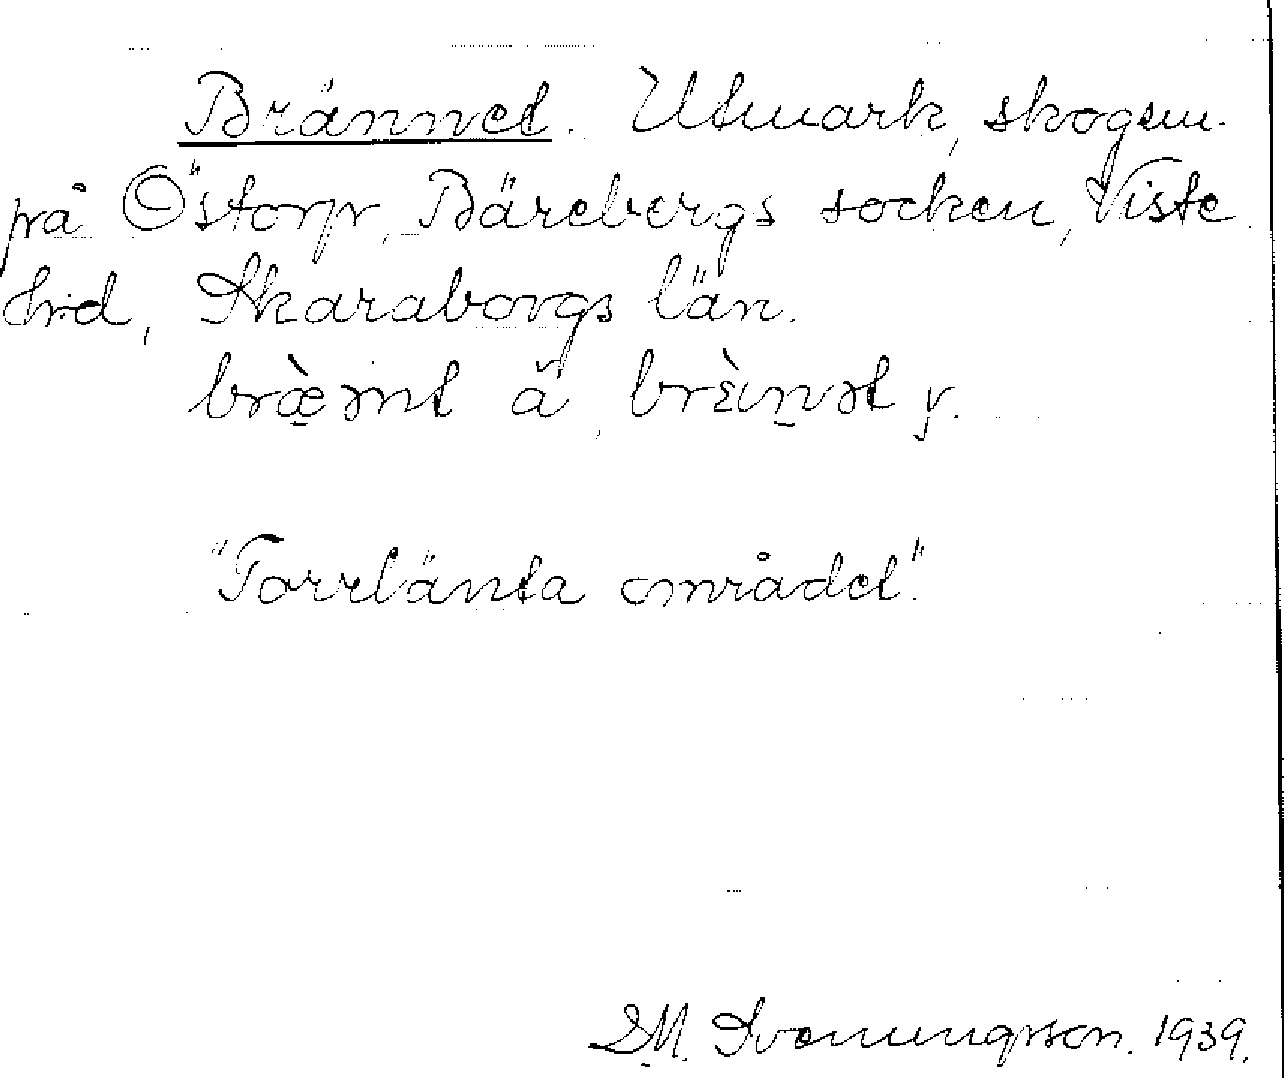 Brännet. Utmark, skogsm.
på Östorp, Bärebergs socken, Viste
hrd, Skaraborgs län.
bræ̀ənt ä, brɛ̀ınət y.
"Torrlänta området".
DM. Svenungsson. 1939.